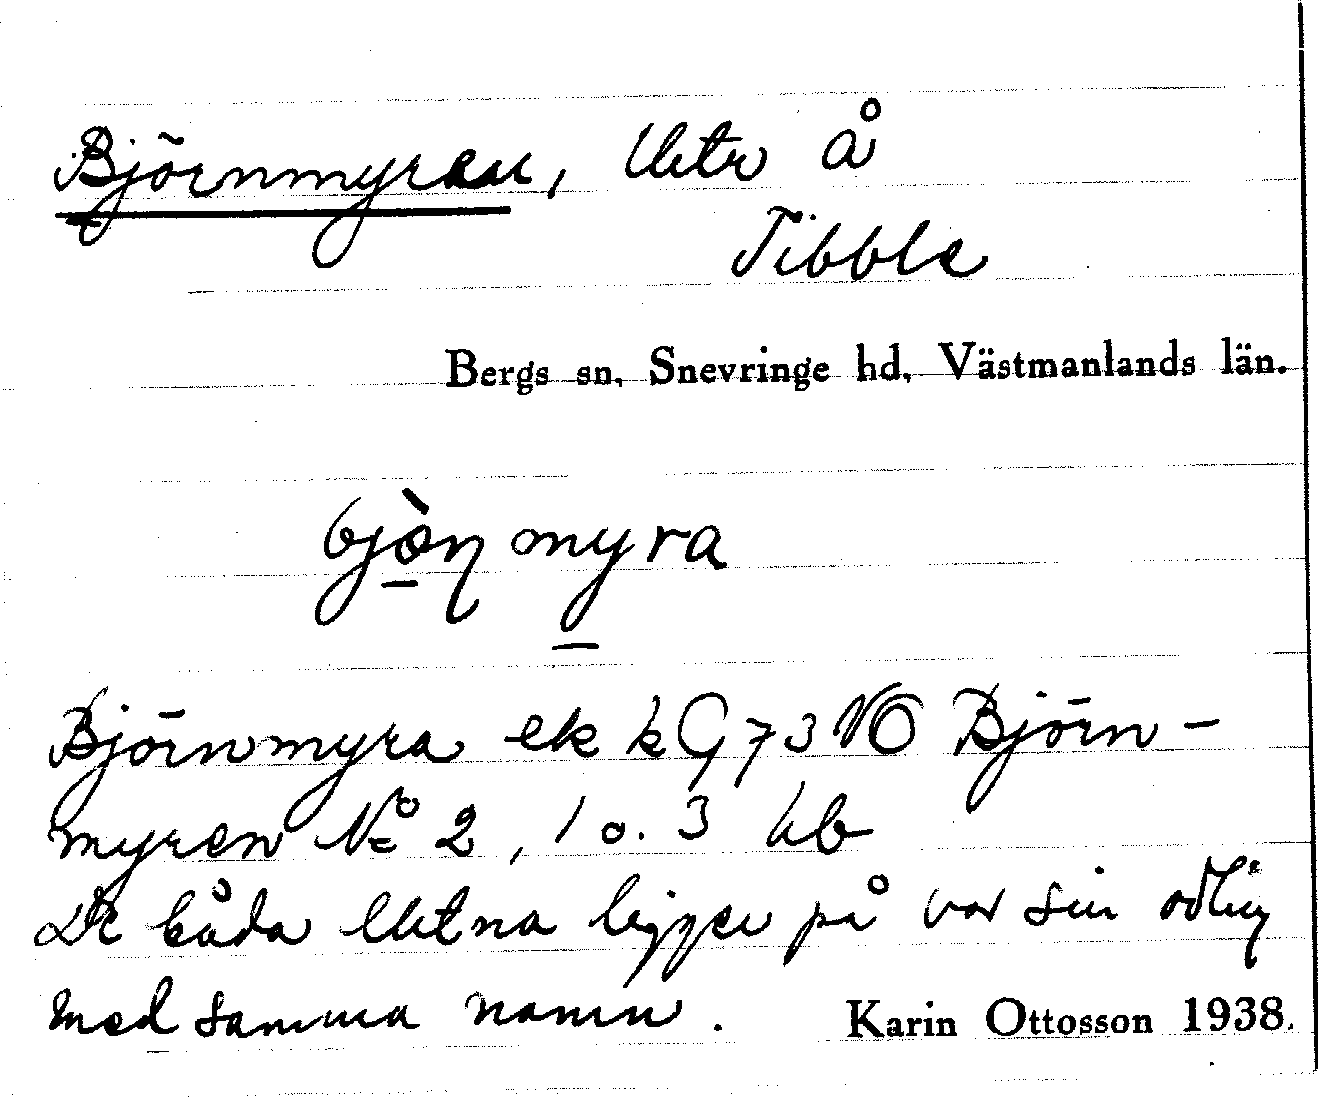 Björnmyren, lktr å
Tibble
Bergs sn, Snevringe hd, Västmanlands län.
bjö̀ṇ myra
Björnmyra ek k G 73 VO Björn-
myren No 2, 1 o. 3
De båda lktna ligger på var sin odlig
med samma namn.
Karin Ottosson 1938.